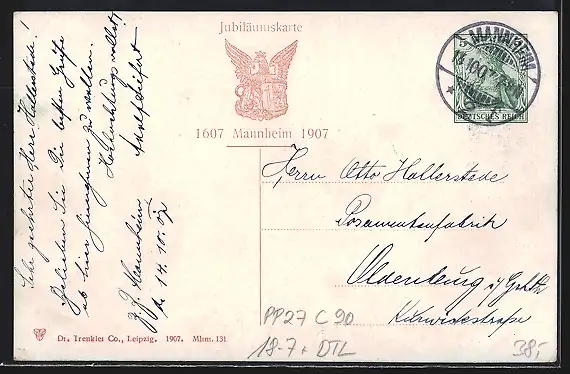 Jubiläumskarte
1607 Mannheim 1907
MANNHEIM
DEUTSCHES REICH
Sehr geehrter Herr Hallerstede!
Belieben Sie die besten Grüße
entgegennehmen zu wollen.
Hochachtungsvollst
Z. Z. Mannheim
14. 10. 07
Herrn Otto Hallerstede
Posamentenfabrik
Oldenburg i/ Großh
Kurwickstraße
PP27 C 90
18-7 + DTL
38,-
Dr. Trenkler Co., Leipzig. 1907. Mhm. 131